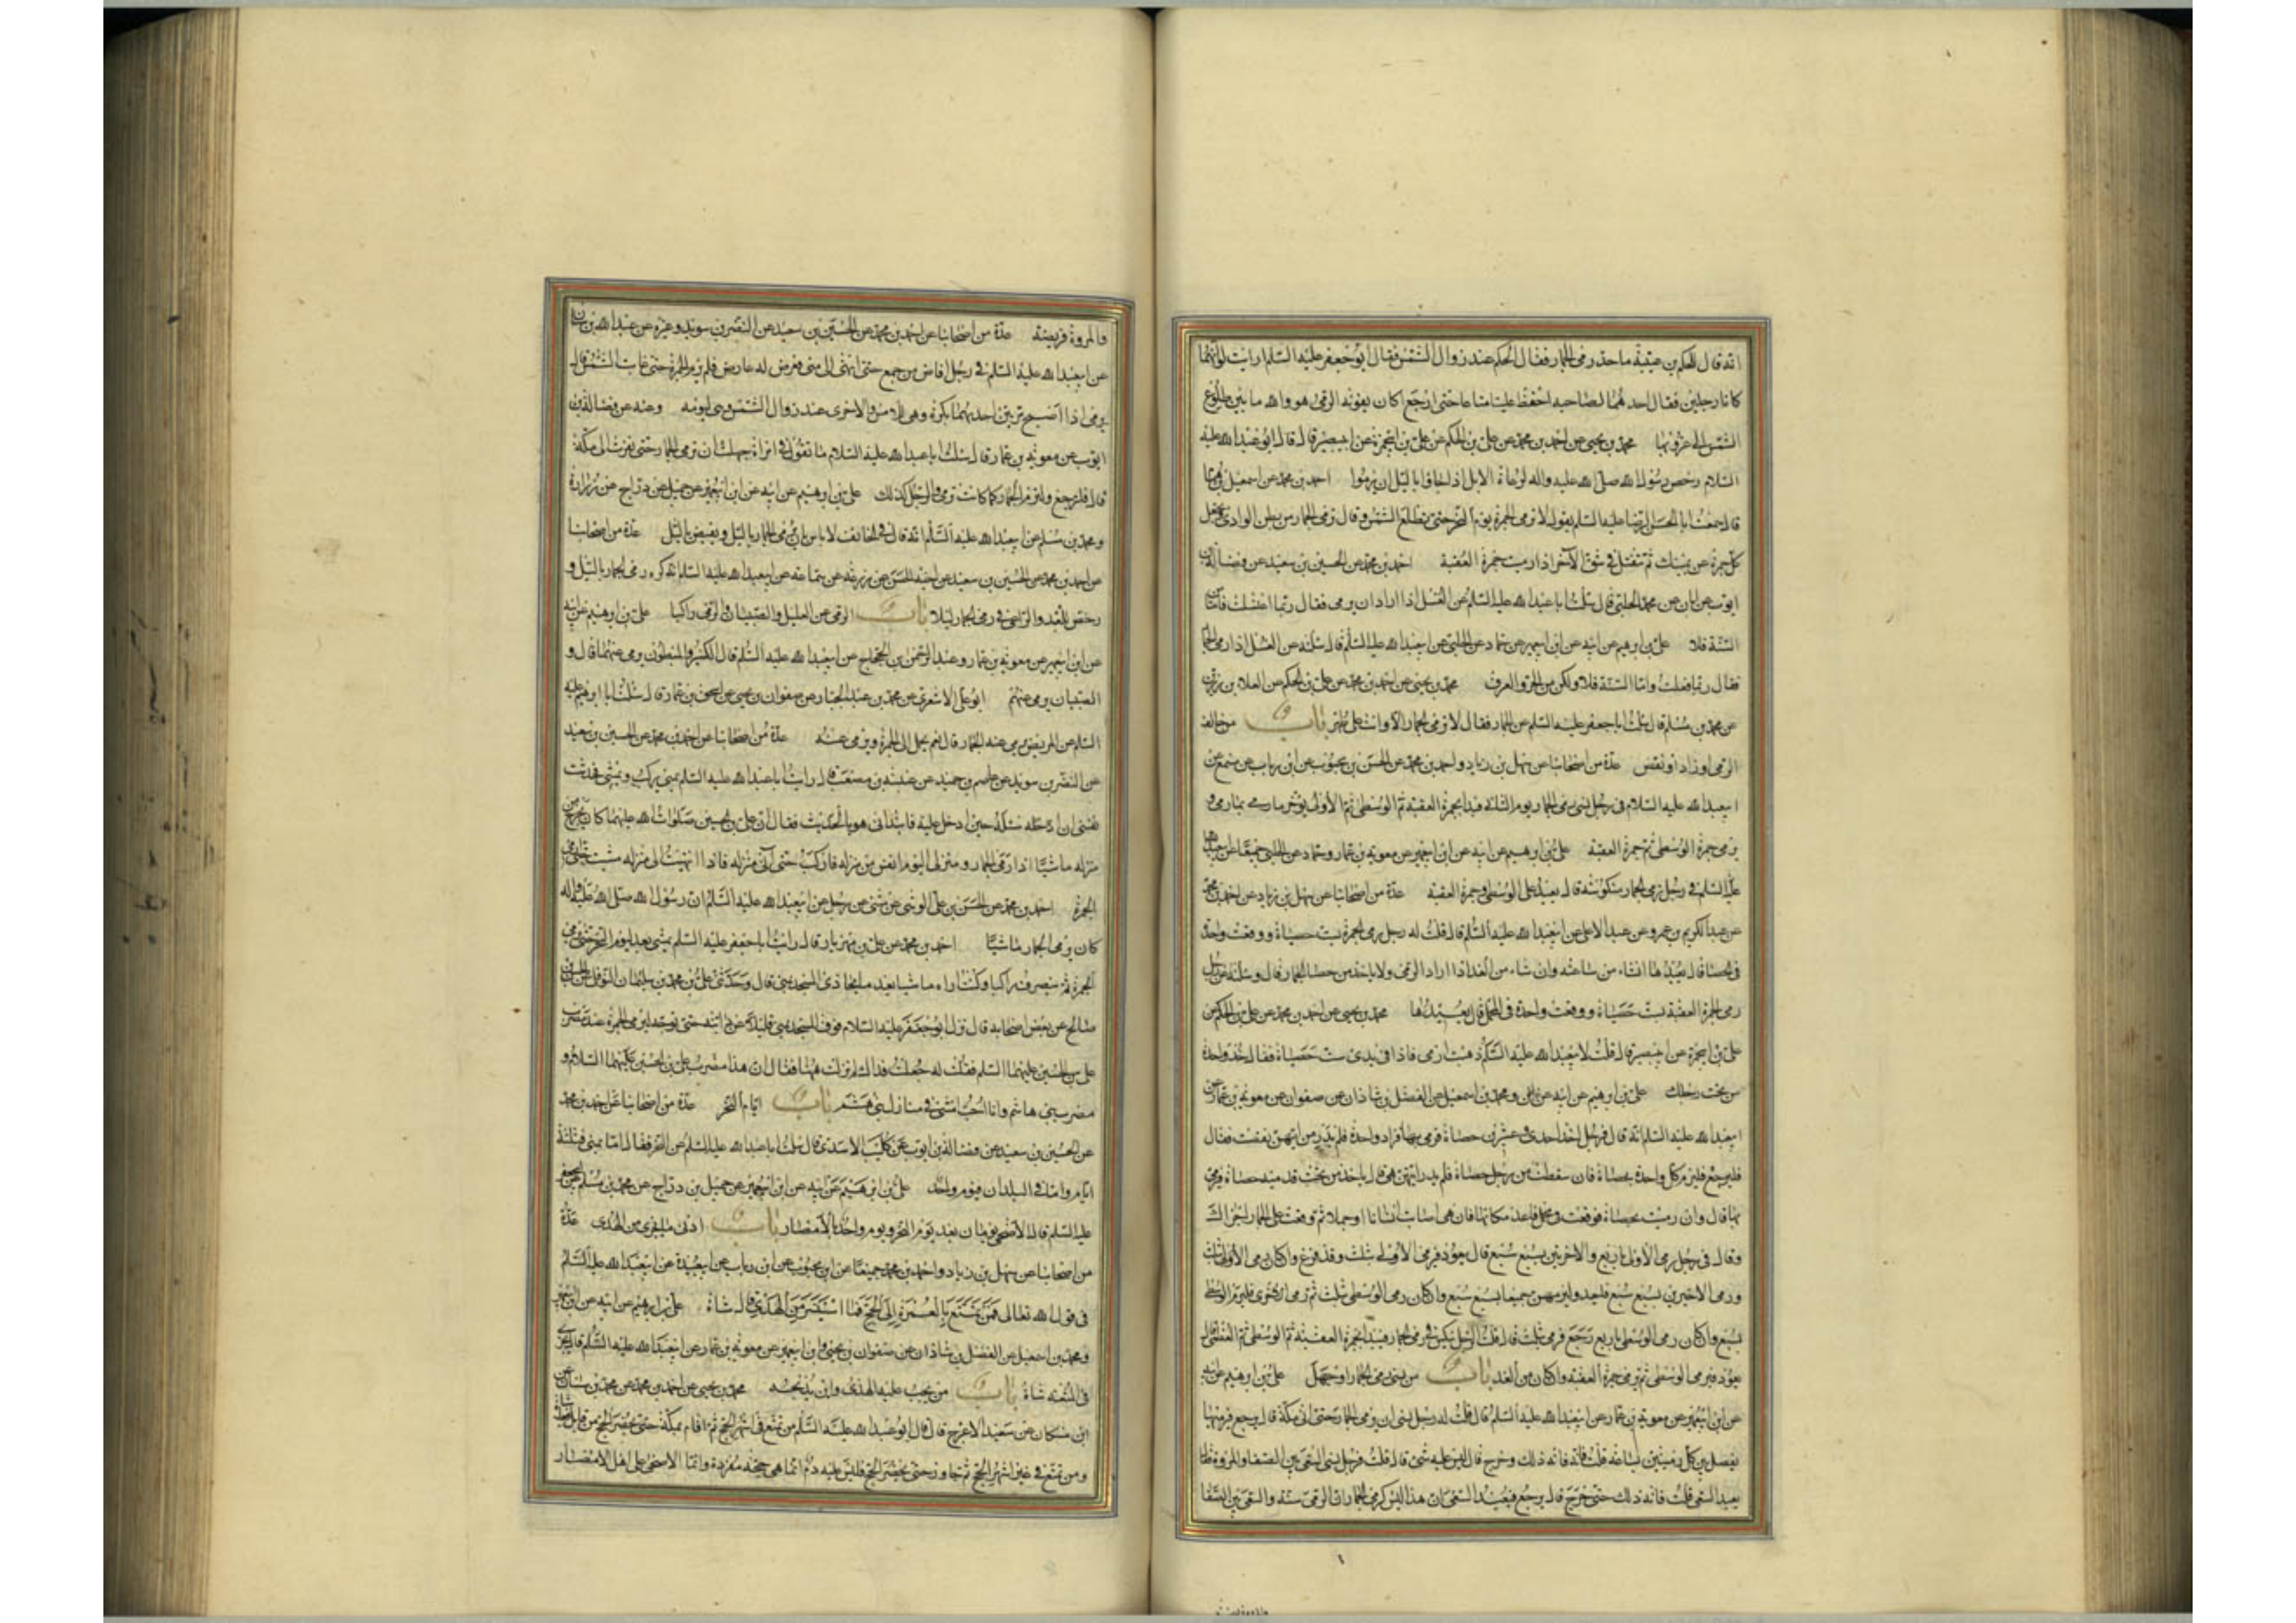 انه قال للحكم بن عتيبة ما حد رمى الجمار فقال الحكم عند زوال الشمس فقال ابو جعفر عليه السلم ارايت لو انهما
كانا رجلين فقال احدهما لصاحبه احفظ علينا متاعنا حتى ارجع اكان يفوته الرمى هو والله ما بين طلوع
الشمس الى غروبها محمد بن يحيى عن احمد بن محمد عن على بن الحكم عن على بن ابى حمزة عن ابى بصير قال قال ابو عبد الله عليه
السلام رخص رسول الله صلى الله عليه واله لرعاة الابل اذا جاؤا بالليل ان يرموا احمد بن محمد عن اسمعيل بن همام
قال سمعت ابا الحسن الرضا عليه السلم يقول لا ترمى الجمرة يوم النحر حتى تطلع الشمس وقال ترمى الجمار من بطن الوادى تجعل
كل جمرة عن يمينك ثم تنفتل فى شق الاخر اذا رميت جمرة العقبة احمد بن محمد عن الحسين بن سعيد عن فضالة بن
ايوب عن ابان عن محمد الحلبى قال سالت ابا عبد الله عليه السلم عن الغسل اذا اراد ان يرمى فقال ربما اغتسلت فاما من
السنة فلا على بن ابرهيم عن ابيه عن ابن ابى عمير عن حماد عن الحلبى عن ابى عبد الله عليه السلم قال سئلته عن الغسل اذا رمى الجمار
فقال ربما فعلت واما السنة فلا ولكن من الحر والعرق محمد بن يحيى عن احمد بن محمد عن على بن الحكم عن العلا بن رزين
عن محمد بن مسلم قال سئلت ابا جعفر عليه السلم عن الجمار فقال لا ترمى الجمار الا وانت على طهر باب من خالف
الرمى او زاد او نقص عدة من اصحابنا عن سهل بن زياد واحمد بن محمد عن الحسن بن محبوب عن ابن رياب عن مسمع عن
ابى عبد الله عليه السلام فى رجل نسى رمى الجمار يوم الثانى فبدا بجمرة العقبة ثم الوسطى ثم الاولى يؤخر ما رمى بما رمى و
يرمى جمرة الوسطى ثم جمرة العقبة على بن ابرهيم عن ابيه عن ابن ابى عمير عن معوية بن عمار وحماد عن الحلبى جميعا عن ابى عبد الله
عليه السلم فى رجل رمى الجمار منكوسة قال يعيد على الوسطى وجمرة العقبة عدة من اصحابنا عن سهل بن زياد عن احمد بن محمد
عن عبد الكريم بن عمرو عن عبد الاعلى عن ابى عبد الله عليه السلم قال قلت له رجل رمى الجمرة بست حصيات ووقعت واحدة
فى الحصا قال يعيدها ان شاء من ساعته وان شاء من الغد اذا اراد الرمى ولا ياخذ من حصا الجمار قال وسئلته عن رجل
رمى الجمرة العقبة بست حصيات ووقعت واحدة فى المحمل قال يعيدها محمد بن يحيى عن احمد بن محمد عن على بن الحكم عن
على بن ابى حمزة عن ابى بصير قال قلت لابى عبد الله عليه السلم ذهبت ارمى فاذا فى يدى ست حصيات فقال خذ واحدة
من تحت رجلك على بن ابرهيم عن ابيه عن ابن ابى عمير ومحمد بن اسمعيل عن الفضل بن شاذان عن صفوان عن معوية بن عمار عن
ابى عبد الله عليه السلم انه قال فى رجل اخذ احدى وعشرين حصاة فرمى بها فزاد واحدة فلم يدر من ايتهن نقصت فقال
فليرجع فليرم كل واحدة بحصاة فان سقطت من رجل حصاة فلم يدر ايتهن هى قال ياخذ من تحت قدميه حصاة فيرمى
بها قال وان رميت بحصاة فوقعت فى محمل فاعد مكانها فان هى اصابت انسانا او جملا ثم وقعت على الجمار اجزاك
وقال فى رجل رمى الاولى باربع والاخرتين بسبع سبع قال يعود فيرمى الاولى بثلث وقد فرغ وان كان رمى الاولى بثلث
ورمى الاخيرتين بسبع سبع فليعد وليرمهن جميعا بسبع سبع وان كان رمى الوسطى بثلث ثم رمى الاخرى فليرم الوسطى
بسبع وان كان رمى الوسطى باربع رجع فرمى بثلث قال قلت الرجل ينكس فى رمى الجمار فيبدا بجمرة العقبة ثم الوسطى ثم العظمى قال
يعود فيرمى الوسطى ثم يرمى جمرة العقبة وان كان من الغد باب من نسى رمى الجمار او جهل على بن ابرهيم عن ابيه
عن ابن ابى عمير عن معوية بن عمار عن ابى عبد الله عليه السلم قال قلت له رجل نسى ان يرمى الجمار حتى اتى مكة قال يرجع فيرميها
يفصل بين كل رميتين بساعة قلت فاته ذلك وخرج قال ليس عليه شئ قال قلت فرجل نسى السعى بين الصفا والمروة فقال
يعيد السعى قلت فاته ذلك حتى خرج قال يرجع فيعيد السعى ان هذا ليس كرمى الجمار ان الرمى سنة والسعى بين الصفا
والمروة فريضة عدة من اصحابنا عن احمد بن محمد عن الحسين بن سعيد عن النضر بن سويد وغيره عن عبد الله بن سنان
عن ابى عبد الله عليه السلم فى رجل افاض من جمع حتى انتهى الى منى فعرض له عارض فلم يرم الجمرة حتى غابت الشمس قال
يرمى اذا اصبح مرتين احديهما بكرة وهى للامس والاخرى عند زوال الشمس وهى ليومه وعنه عن فضالة بن
ايوب عن معوية بن عمار قال سئلت ابا عبد الله عليه السلام ما تقول فى امراة جهلت ان ترمى الجمار حتى نفرت الى مكة
قال فلترجع ولترم الجمار كما كانت ترمى والرجل كذلك على بن ابرهيم عن ابيه عن ابن ابى عمير عن جميل بن دراج عن زرارة
ومحمد بن مسلم عن ابى عبد الله عليه السلم انه قال فى الخائف لا باس بان يرمى الجمار بالليل ويفيض بالليل عدة من اصحابنا
عن احمد بن محمد عن الحسين بن سعيد عن اخيه الحسن عن زرعة عن سماعة عن ابى عبد الله عليه السلم انه كره رمى الجمار بالليل و
رخص للعبد والراعى فى رمى الجمار ليلا باب الرمى عن العليل والصبيان والرمى راكبا على بن ابرهيم عن ابيه
عن ابن ابى عمير عن معوية بن عمار وعبد الرحمن بن الحجاج عن ابى عبد الله عليه السلم قال الكسير والمبطون يرمى عنهما قال و
الصبيان يرمى عنهم ابو على الاشعرى عن محمد بن عبد الجبار عن صفوان بن يحيى عن اسحق بن عمار قال سئلت ابا ابرهيم عليه
السلم عن المريض يرمى عنه الجمار قال نعم يحمل الى الجمرة ويرمى عنه عدة من اصحابنا عن احمد بن محمد عن الحسين بن سعيد
عن النضر بن سويد عن عاصم بن حميد عن عنبسة بن مصعب قال رايت ابا عبد الله عليه السلم بمنى يركب ويمشى فحدثت
نفسى ان اسئله حين ادخل عليه فابتدانى هو بالحديث فقال ان على بن الحسين صلوات الله عليهما كان يخرج من
منزله ماشيا اذا رمى الجمار ومنزلى اليوم انفس من منزله فاركب حتى اتى منزله فاذا انتهيت الى منزله مشيت حتى ارمى
الجمرة احمد بن محمد عن الحسن بن على الوشا عن مثنى عن رجل عن ابى عبد الله عليه السلم ان رسول الله صلى الله عليه واله
كان يرمى الجمار ماشيا احمد بن محمد عن على بن مهزيار قال رايت ابا جعفر عليه السلم يمشى بعد يوم النحر حتى يرمى
الجمرة ثم ينصرف راكبا وكنت اراه ماشيا بعد ما يحاذى المسجد بمنى قال وحدثنى على بن محمد بن سليمان النوفلى عن الحسن بن
صالح عن بعض اصحابه قال نزل ابو جعفر عليه السلام فوق المسجد بمنى قليلا عن دابته حتى توجه ليرمى الجمرة عند مضرب
على بن الحسين عليهما السلم فقلت له جعلت فداك لم نزلت ههنا فقال ان هذا مضرب على بن الحسين عليهما السلام و
مضرب بنى هاشم وانا احب ان امشى فى منازل بنى هشم باب ايام النحر عدة من اصحابنا عن احمد بن محمد
عن الحسين بن سعيد عن فضالة بن ايوب عن كليب الاسدى قال سئلت ابا عبد الله عليه السلم عن النحر فقال اما بمنى فثلثة
ايام واما فى البلدان فيوم واحد على بن ابرهيم عن ابيه عن ابن ابى عمير عن جميل بن دراج عن محمد بن مسلم عن ابى جعفر
عليه السلم قال الاضحى يومان بعد يوم النحر ويوم واحد بالامصار باب ادنى ما يجزى من الهدى عدة
من اصحابنا عن سهل بن زياد واحمد بن محمد جميعا عن ابن محبوب عن ابن رياب عن ابى عبيدة عن ابى عبد الله عليه السلم
فى قول الله تعالى فمن تمتع بالعمرة الى الحج فما استيسر من الهدى قال شاة على بن ابرهيم عن ابيه عن ابن ابى عمير
ومحمد بن اسمعيل عن الفضل بن شاذان عن صفوان بن يحيى وابن ابى عمير عن معوية بن عمار عن ابى عبد الله عليه السلم قال يجزى
فى المتعة شاة باب من يجب عليه الهدى واين يذبحه محمد بن يحيى عن احمد بن محمد عن محمد بن سنان عن
ابن مسكان عن سعيد الاعرج قال قال ابو عبد الله عليه السلم من تمتع فى اشهر الحج ثم اقام بمكة حتى يحضر الحج من قابل فعليه شاة
ومن تمتع فى غير اشهر الحج ثم جاور حتى يحضر الحج فليس عليه دم انما هى حجة مفردة وانما الاضحى على اهل الامصار